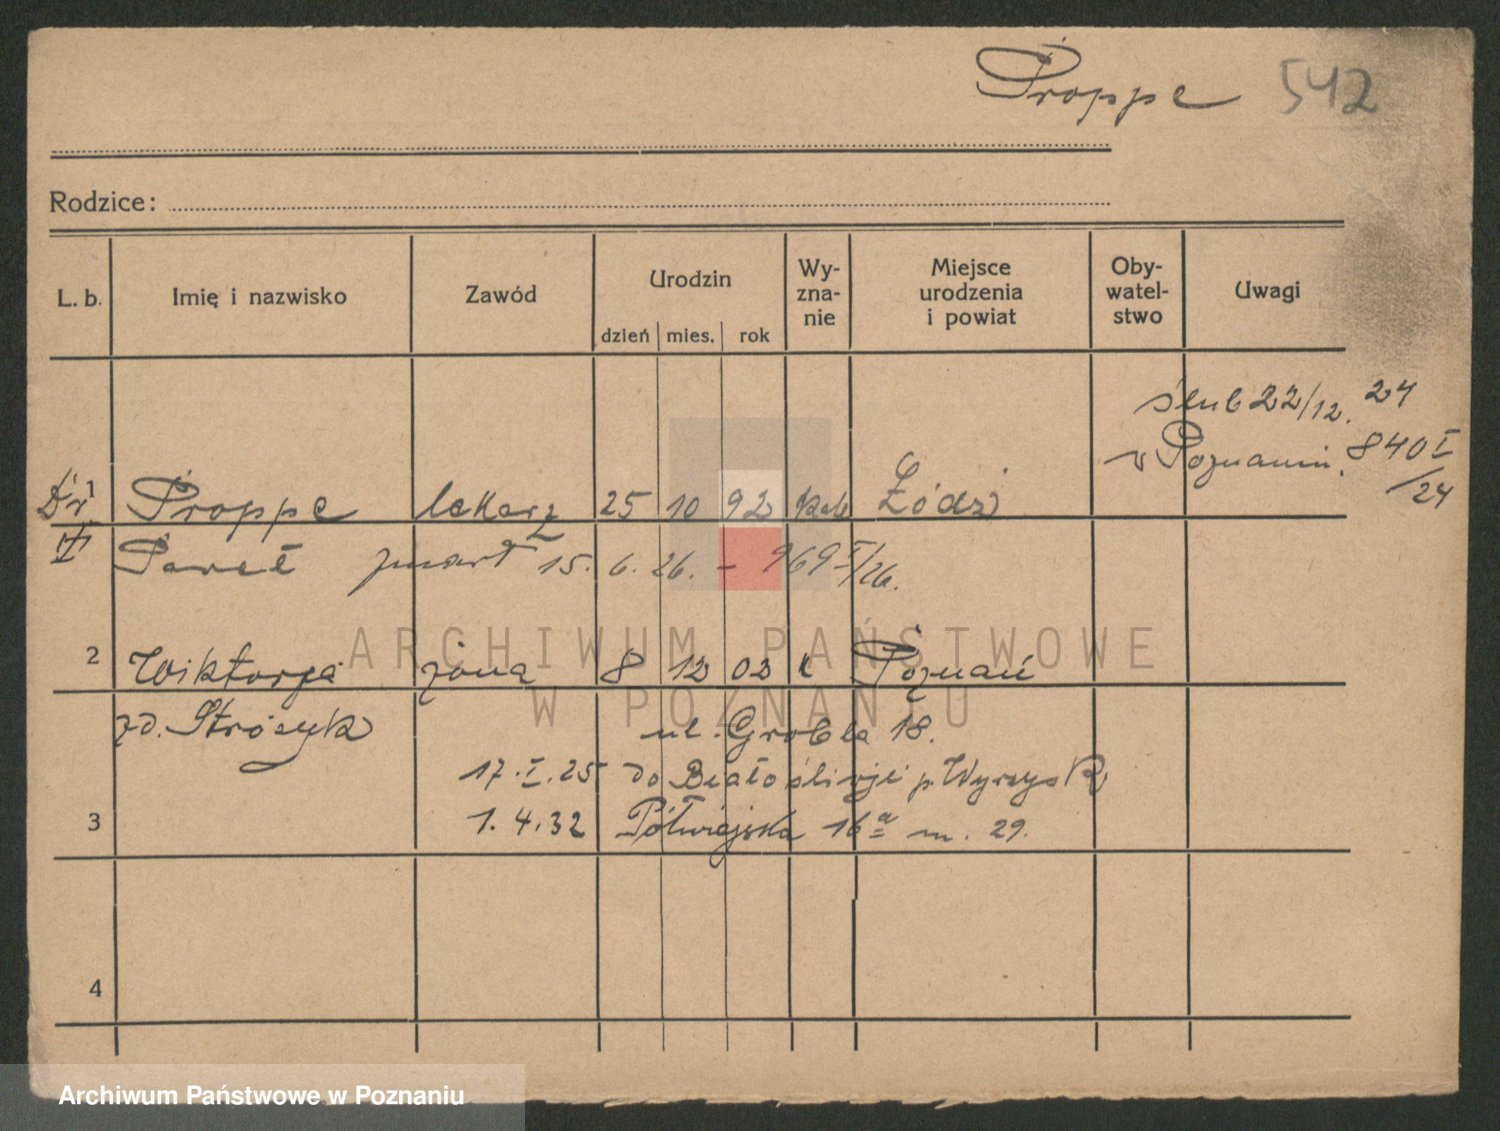 Proppe 542
Rodzice:
L. b. Imię i nazwisko Zawód Urodzin dzień mies. rok Wy-zna-nie Miejsce urodzenia i powiat Oby-watel-stwo Uwagi
ślub 22/12. 24
w Poznaniu. 840 I/24
Dr 1 Proppe lekarz 25 10 92 Kat Łódź
Paweł zmarł 15. 6. 26. – 969 I/26.
ARCHIWUM PAŃSTWOWE
2 Wiktorja żona 8 12 02 k Poznań
W POZNANIU
zd. Strózyk ul. Grobla 18.
17. I. 25 do Białośliwji p. Wyrzysk
3 1. 4. 32 Półwiejska 16a m. 29.
4
Archiwum Państwowe w Poznaniu